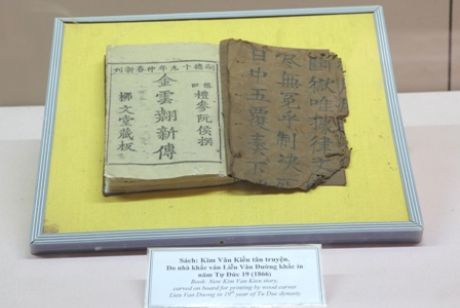 嗣德十九年仲春新刊
僊田禮參阮侯撰
金雲翹新傳
柳文堂藏板
獄唯據律文
尽無冤乎制决死
日中五覆奏下
Sách: Kim Vân Kiều tân truyện,
Do nhà khắc ván Liễu Văn Đường khắc in
năm Tự Đức 19 (1866)
Book: New Kim Van Kieu story,
carved on board for printing by wood carver
Lieu Van Duong in 19th year of Tu Duc dynasty